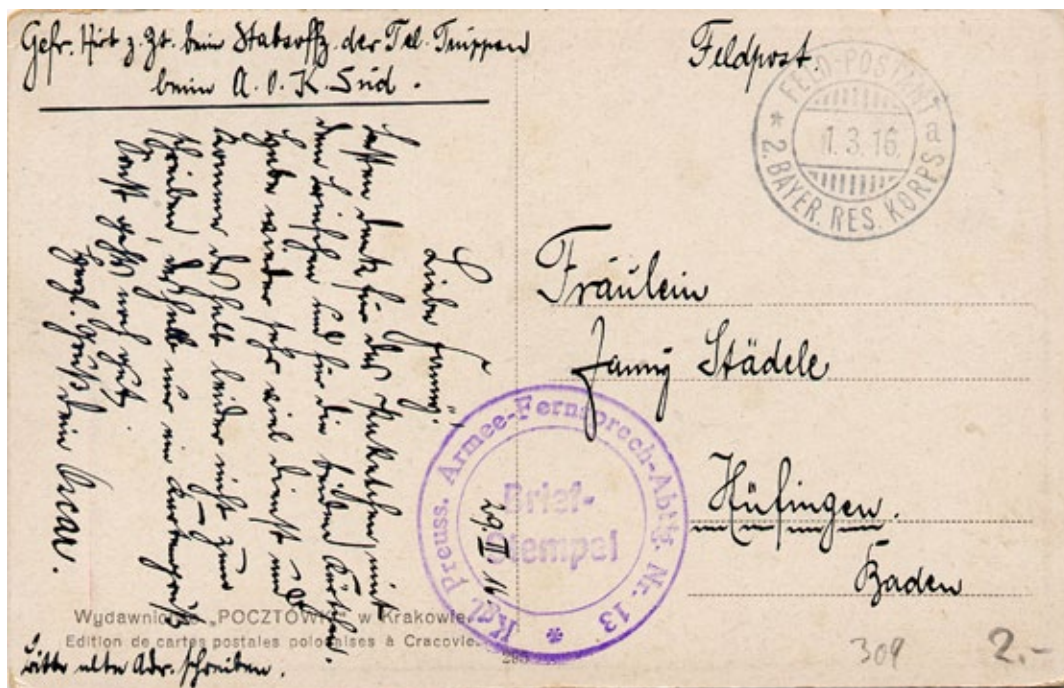 Gefr. Hirt z. Zt. beim Stabsoffz. der Tel. Truppen
beim A. O. K. Süd.
Feldpost.
FELD-POSTAMT a
1.3.16.
* 2. BAYER. RES. KORPS
Fräulein
Fanny Städele
Hüfingen.
Baden
29 II 16
Liebe Fanny!
Besten Dank für das Paketchen mit
dem und für die beiden Karten.
Habe wieder sehr viel Dienst und
komme deshalb leider nicht zum
schreiben, deshalb nur ein Kartengruß
Sonst geht's noch gut.
Herzl. Gruß Dein Oscar.
Kgl. Preuss. Armee-Fernsprech-Abtlg. Nr. 13 *
Brief-
Stempel
Wydawnictwo „POCZTÓWKI" w Krakowie.
Edition de cartes postales polonaises à Cracovie.
bitte alte Adr. schreiben.
309
2.-